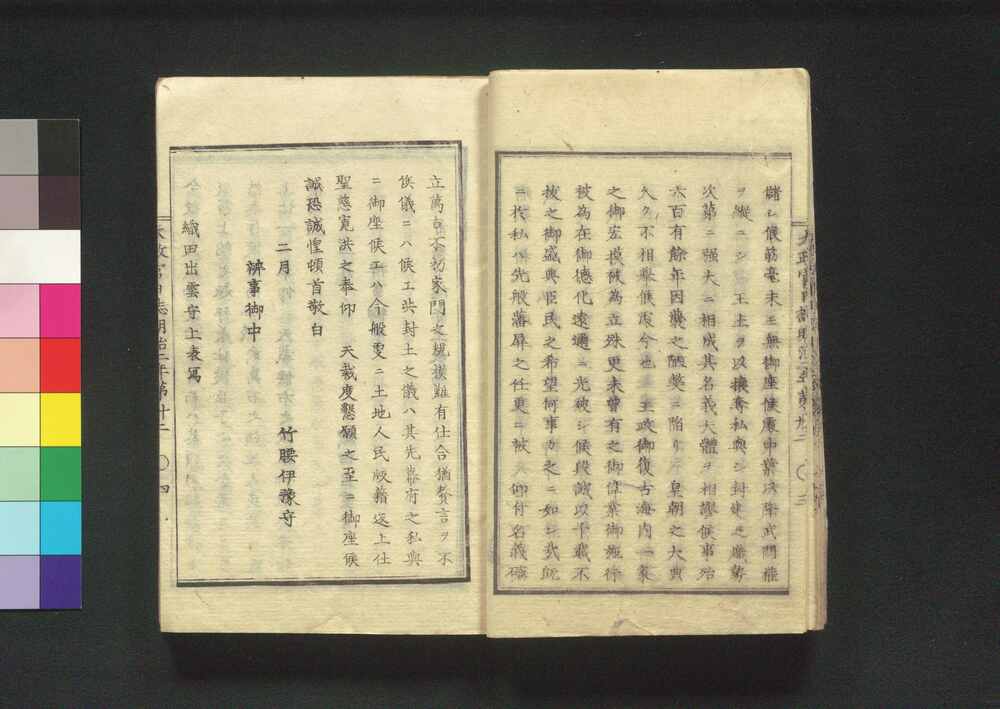 儲シ候筋毫末モ無御座候處中葉以降武門權
ヲ縱ニシ　王土ヲ以攘奪私與シ封建之厲勢
次第ニ强大ニ相成其名義大體ヲ相謬候事殆
六百有餘年因襲之陋弊ニ陷リ　皇朝之大典
久ク不相擧候處今也　王政御復古海内一家
之御宏模被為立殊更未曾有之御偉業御施行
被為在御德化遠邇ニ光被シ候段誠以千載不
拔之御盛典臣民之希望何事カ之ニ如シ我既
ニ於私ハ先般藩屏之任更ニ被　仰付名義確
太政官日誌明治二年第十二　〇三
立萬吉不朽家門之規模難有仕合猶贅言ヲ不
俟儀ニハ候エ共封土之儀ハ其先幕府之私與
ニ御座候エハ今般更ニ土地人民版籍返上仕
聖慈寬洪之奉仰　天裁度懇願之至ニ御座候
誠恐誠惶頓首敬白
二月　竹腰伊豫守
辨事御中
織田出雲守上表寫
太政官日誌明治二年第十二　〇四